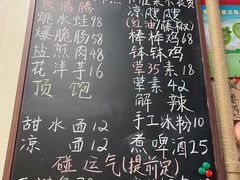 熊腾腾
跳水蛙98
爆脆肠58
盐煎肉48
花洋芋16
顶饱
甜水面12
凉面12
凉
(红油/藤椒)
棒棒鸡68
钵钵鸡
荤35素18
荤素42
解辣
手工冰粉10
煮啤酒25
碰运气(提前定)